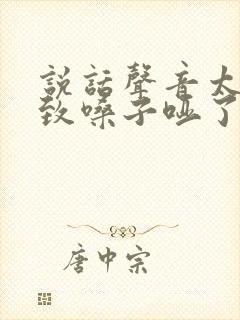 説話聲音太
致嗓子啞了
唐中宗